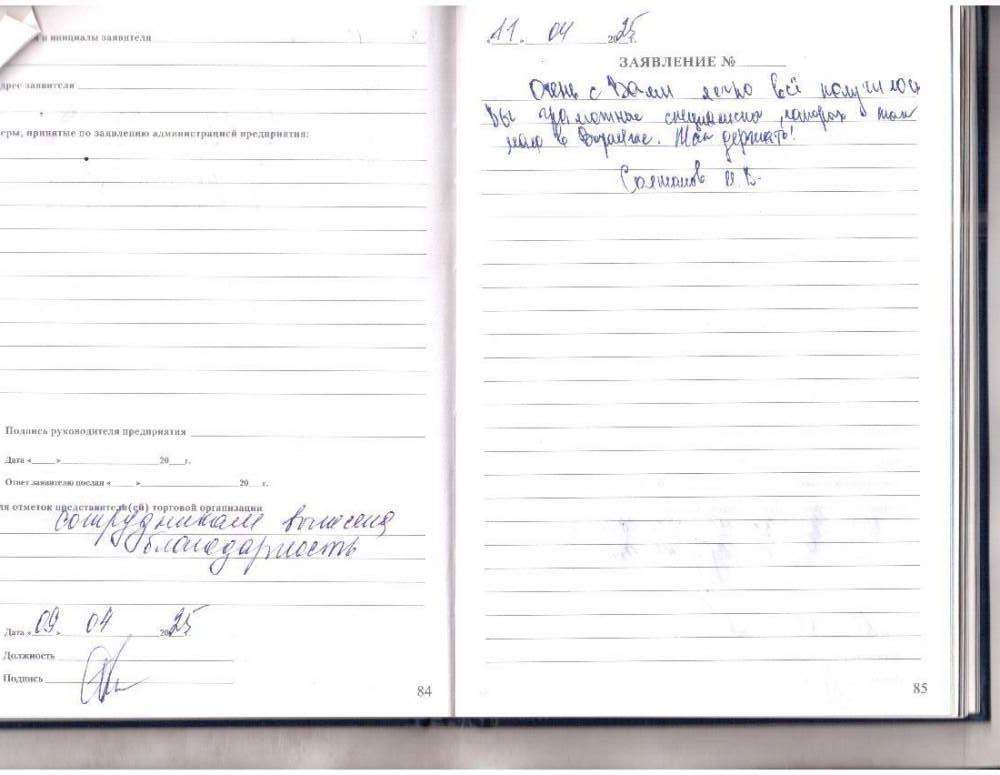 и инициалы заявителя
дрес заявителя
еры, принятые по заявлению администрацией предприятия:
Подпись руководителя предприятия
Дата «____»____20__г.
Ответ заявителю послан «____»____20__г.
ля отметок представителя(ей) торговой организации
сотрудникам вынесена
благодарность
Дата «09» 04 2025
Должность
Подпись
84
11. 04 2025г.
ЗАЯВЛЕНИЕ №
Очень с Вами легко всё получилось
Вы грамотные специалисты, которых так
мало в Воронеже. Так держать!
И.В.
85